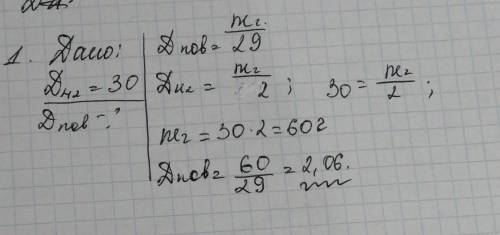 1. Дано:
D_H2 = 30
D пов - ?
D пов = mг/29
D_H2 = mг/2 ; 30 = mг/2 ;
mг = 30·2 = 60г
D пов = 60/29 = 2,06.